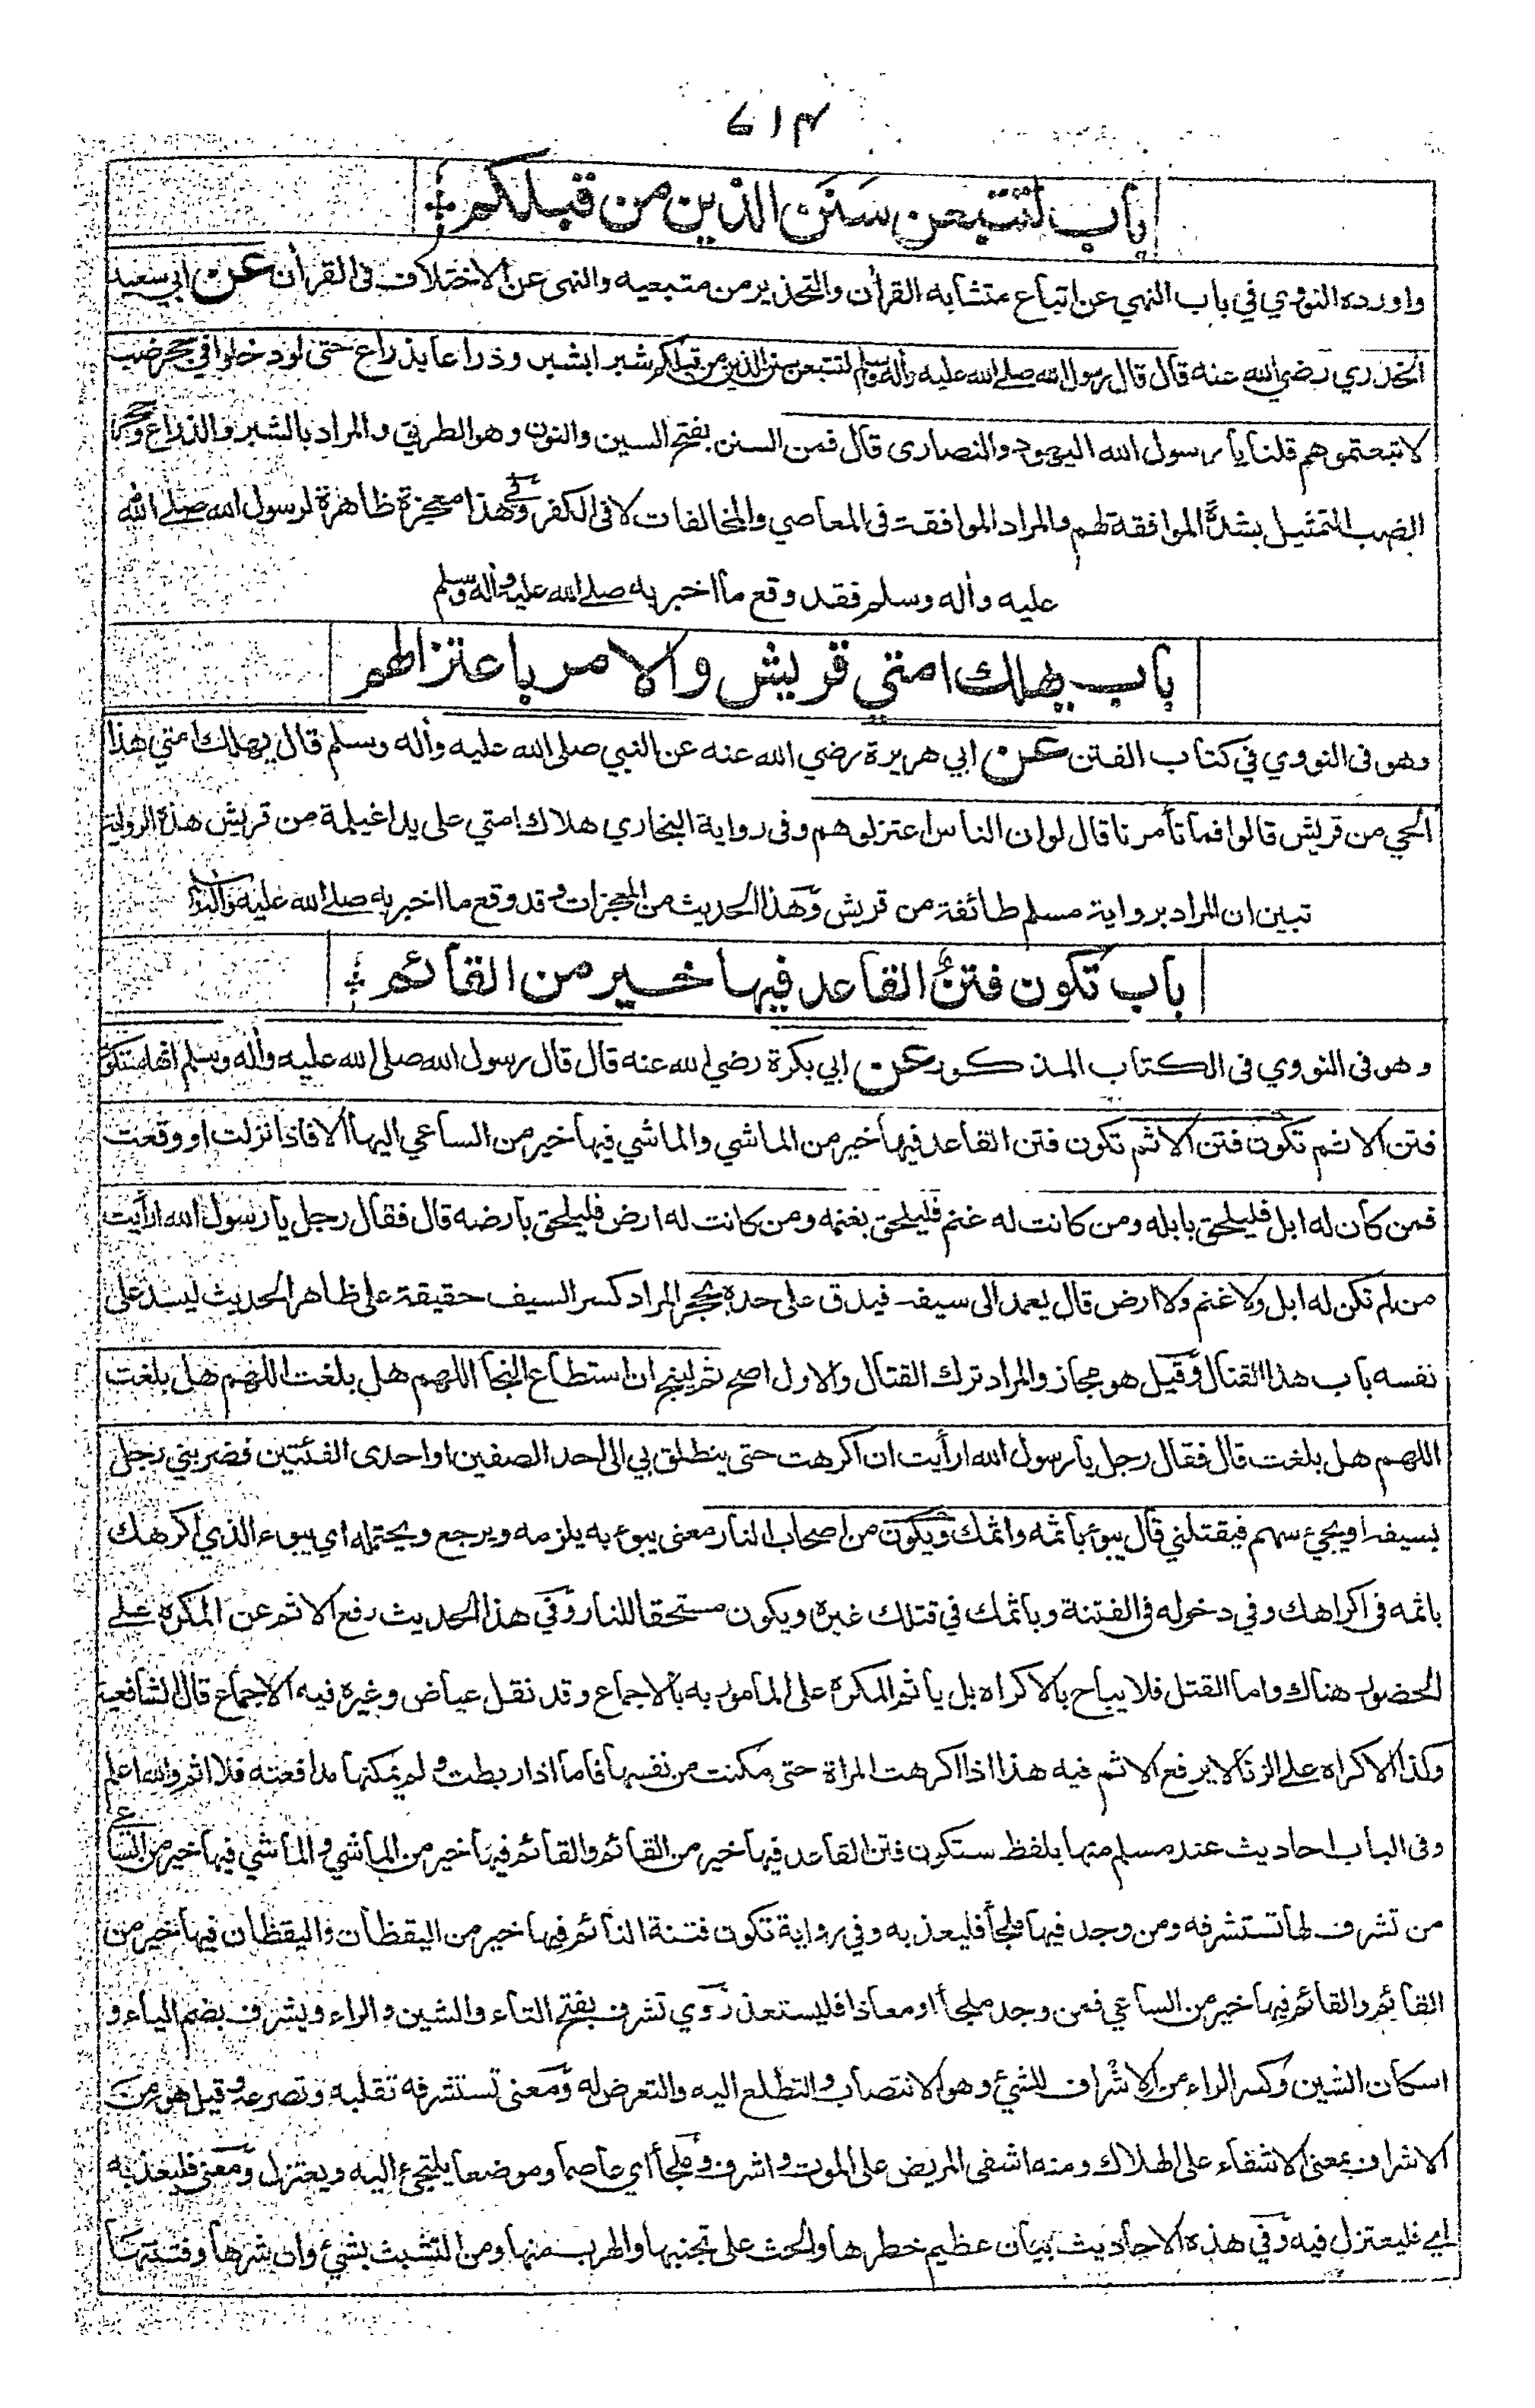 باب لتتبعن سَنَن الذين من قبلكم
واورده النووي في باب النهي عن اتباع متشابه القرأن والتحذير من متبعيه والنهى عن الاختلاف فى القرأن عن ابي سعيد
الخدري رضي الله عنه قال قال رسول الله صلے الله عليه وأله وسلم لتتبعن سنن الذين من قبلكم شبرا بشبر وذراعا بذراع حتى لو دخلوا في جحر ضب
لاتبعتموهم قلنا يا رسول الله اليهود والنصارى قال فمن السنن بفتح السين والنون وهو الطريق والمراد بالشبر والذراع وجحر
الضب التمثيل بشدة الموافقة لهم والمراد الموافقة فى المعاصي والمخالفات لا فى الكفر وفي هذا معجزة ظاهرة لرسول الله صلے الله
عليه وأله وسلم فقد وقع ما اخبر به صلے الله عليه وأله وسلم
باب يهلك امتي قريش والامر باعتزالهم
وهو فى النووي في كتاب الفتن عن ابي هريرة رضي الله عنه عن النبي صلى الله عليه وأله وسلم قال يهلك امتي هذا
الحي من قريش قالوا فما تأمرنا قال لوان الناس اعتزلوهم وفى رواية البخاري هلاك امتي على يد اغيلمة من قريش هذه الرواية
تبين ان المراد برواية مسلم طائفة من قريش وهذا الحديث من المعجزات وقد وقع ما اخبر به صلے الله عليه وأله
باب تكون فتن القاعد فيها خير من القائم
وهو فى النووي فى الكتاب المذكور عن ابي بكرة رضي الله عنه قال قال رسول الله صلى الله عليه وأله وسلم انها ستكون
فتن الا ثم تكون فتن الا ثم تكون فتن القاعد فيها خير من الماشي والماشي فيها خير من الساعي اليها الا فاذا نزلت او وقعت
فمن كان له ابل فليلحق بابله ومن كانت له غنم فليلحق بغنمه ومن كانت له ارض فليلحق بارضه قال فقال رجل يا رسول الله ارأيت
من لم تكن له ابل ولا غنم ولا ارض قال يعمد الى سيفه فيدق على حده بحجر المراد كسر السيف حقيقة على ظاهر الحديث ليسد على
نفسه باب هذا القتال وقيل هو مجاز والمراد ترك القتال والاول اصح ثم لينج ان استطاع النجا اللهم هل بلغت اللهم هل بلغت
اللهم هل بلغت قال فقال رجل يا رسول الله ارأيت ان اكرهت حتى ينطلق بي الى احد الصفين او احدى الفئتين فضربني رجل
بسيفه او يجيء سهم فيقتلني قال يبوء باثمه واثمك ويكون من اصحاب النار معنى يبوء به يلزمه ويرجع ويحتمله اي يبوء الذي اكرهك
باثمه فى اكراهك وفي دخوله فى الفتنة وباثمك في قتلك غيره ويكون مستحقا للنار وفي هذا الحديث رفع الاثم عن المكره على
الحضور هناك واما القتل فلا يباح بالاكراه بل يأثم المكره على المأمور به بالاجماع وقد نقل عياض وغيره فيه الاجماع قال الشافعية
وكذا الاكراه على الزنا لا يرفع الاثم فيه هذا اذا اكرهت المراة حتى مكنت من نفسها فاما اذا ربطت ولم يمكنها مدافعته فلا اثم والله اعلم
وفى الباب احاديث عند مسلم منها بلفظ ستكون فتن القاعد فيها خير من القائم والقائم فيها خير من الماشي والماشي فيها خير من الساعي
من تشرف لها تستشرفه ومن وجد فيها ملجأ فليعذ به وفي رواية تكون فتنة النائم فيها خير من اليقظان واليقظان فيها خير من
القائم والقائم فيها خير من الساعي فمن وجد ملجأ او معاذا فليستعذ روي تشرف بفتح التاء والشين والراء ويشرف بضم الياء و
اسكان الشين وكسر الراء من الاشراف للشيء وهو الانتصاب والتطلع اليه والتعرض له ومعنى تستشرفه تقلبه وتصرعه وقيل هو من
الاشراف بمعنى الاشفاء على الهلاك ومنه اشفى المريض على الموت واشرف وملجأ اي عاصما وموضعا يلتجئ اليه ويعتزل ومعنى فليعذ به
اي فليعتزل فيه وفي هذه الاحاديث بيان عظيم خطرها والحث على تجنبها والهرب منها ومن التشبث بشيء وان شرها وفتنتها